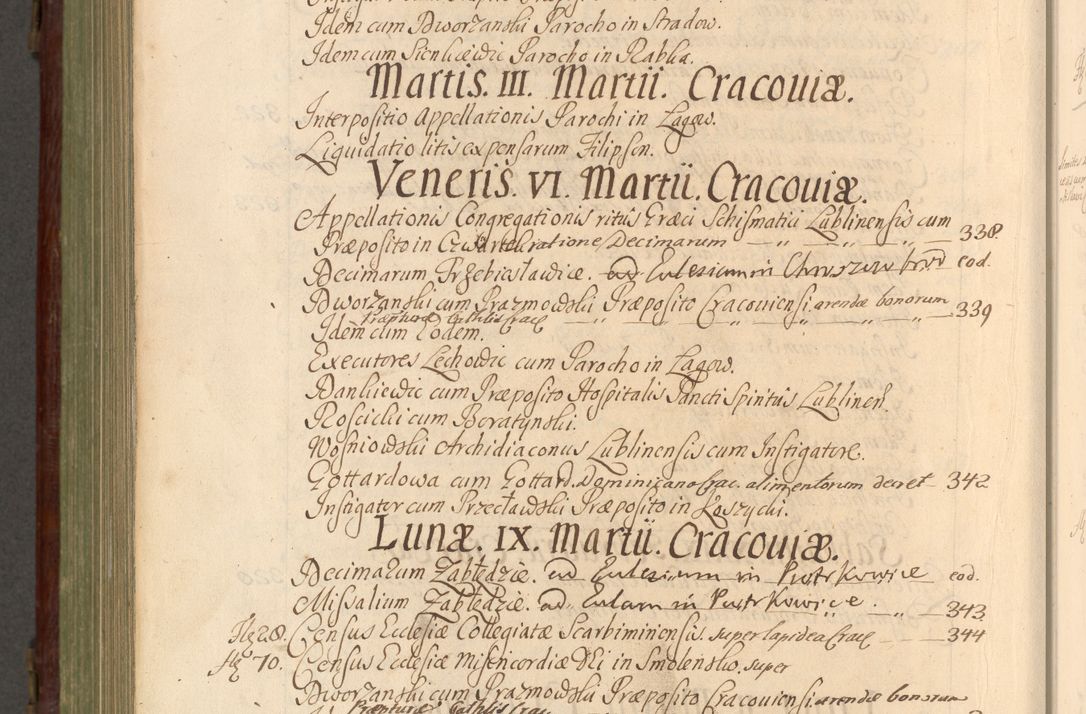 Idem cum Dworzanski Parocho in Stradow.
Idem cum Sienkiewic Parocho in Rabka.
Martis. III. Martii. Cracoviæ.
Interpositio Appellationis Parochi in Łagow.
Liquidatio litis expensarum Filipsen.
Veneris. VI. Martii. Cracoviæ.
Appellationis Congregationis ritus Græci Schismatici Lublinensis cum
Præposito in ratione Decimarum — „ — „ — „ — 338.
Decimarum Przebiesławice. ad Ecclesiam in eod.
Dworzanski cum Prazmowski Præposito Cracoviensi. arendæ bonorum
Præpturæ Cathlis Crac — „ — „ — „ — 339
Idem cum Eodem.
Executores Lechowic cum Parocho in Łagow.
Dankiewic cum Præposito Hospitalis Sancti Spiritus Lublinen.
Roscicki cum Boratynski.
Wosniowski Archidiaconus Lublinensis cum Instigatore.
Gottardowa cum Gottard. Dominicano Crac. alimentorum decret — 342
Instigator cum Przecławski Præposito in Łoszycki.
Lunæ. IX. Martii. Cracoviæ.
Decimarum Zabłędzie. ad Ecclesiam in Piotrkowice eod.
Missalium Zabłędzie. ad Eccłam in Piotrkowice. „ — 343.
Census Ecclesiæ Collegiatæ Scarbiminensis. super lapidea Crac — 344
fl 70. Census Ecclesiæ Misericordiæ Dei in Smolensko. super
Dworzanski cum Prazmowski Præposito Cracoviensi. arendæ bonorum
Præpturæ Cathlis Crac